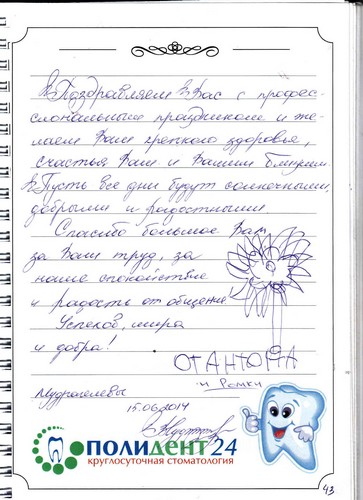 Поздравляем Вас с профес-
сиональным праздником и же-
лаем Вам крепкого здоровья,
счастья Вам и Вашим близким.
Пусть все дни будут солнечными,
добрыми и радостными.
Спасибо большое Вам
за Ваш труд, за
наше спокойствие
и радость от общения
Успехов, мира
и добра!
ОТ АНТОНА
и Ромки
15.06.2014
ПОЛИДЕНТ 24
круглосуточная стоматология
43